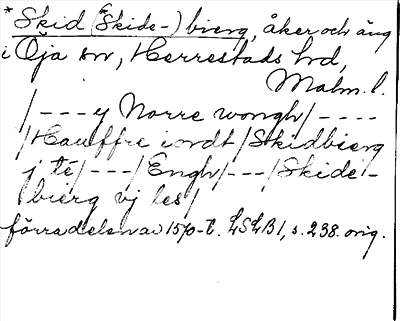 *Skid (*Skide-) bierg, åker och äng
i Öja sn, Herrestads hd,
Malm. l.
/---y Norre wongh/----
/Hauffre iordt/Skidbierg
j té/---/Engh/---/Skide-
bierg vj les/
förra delen av 1570-t. LSLB1, s. 238. orig.